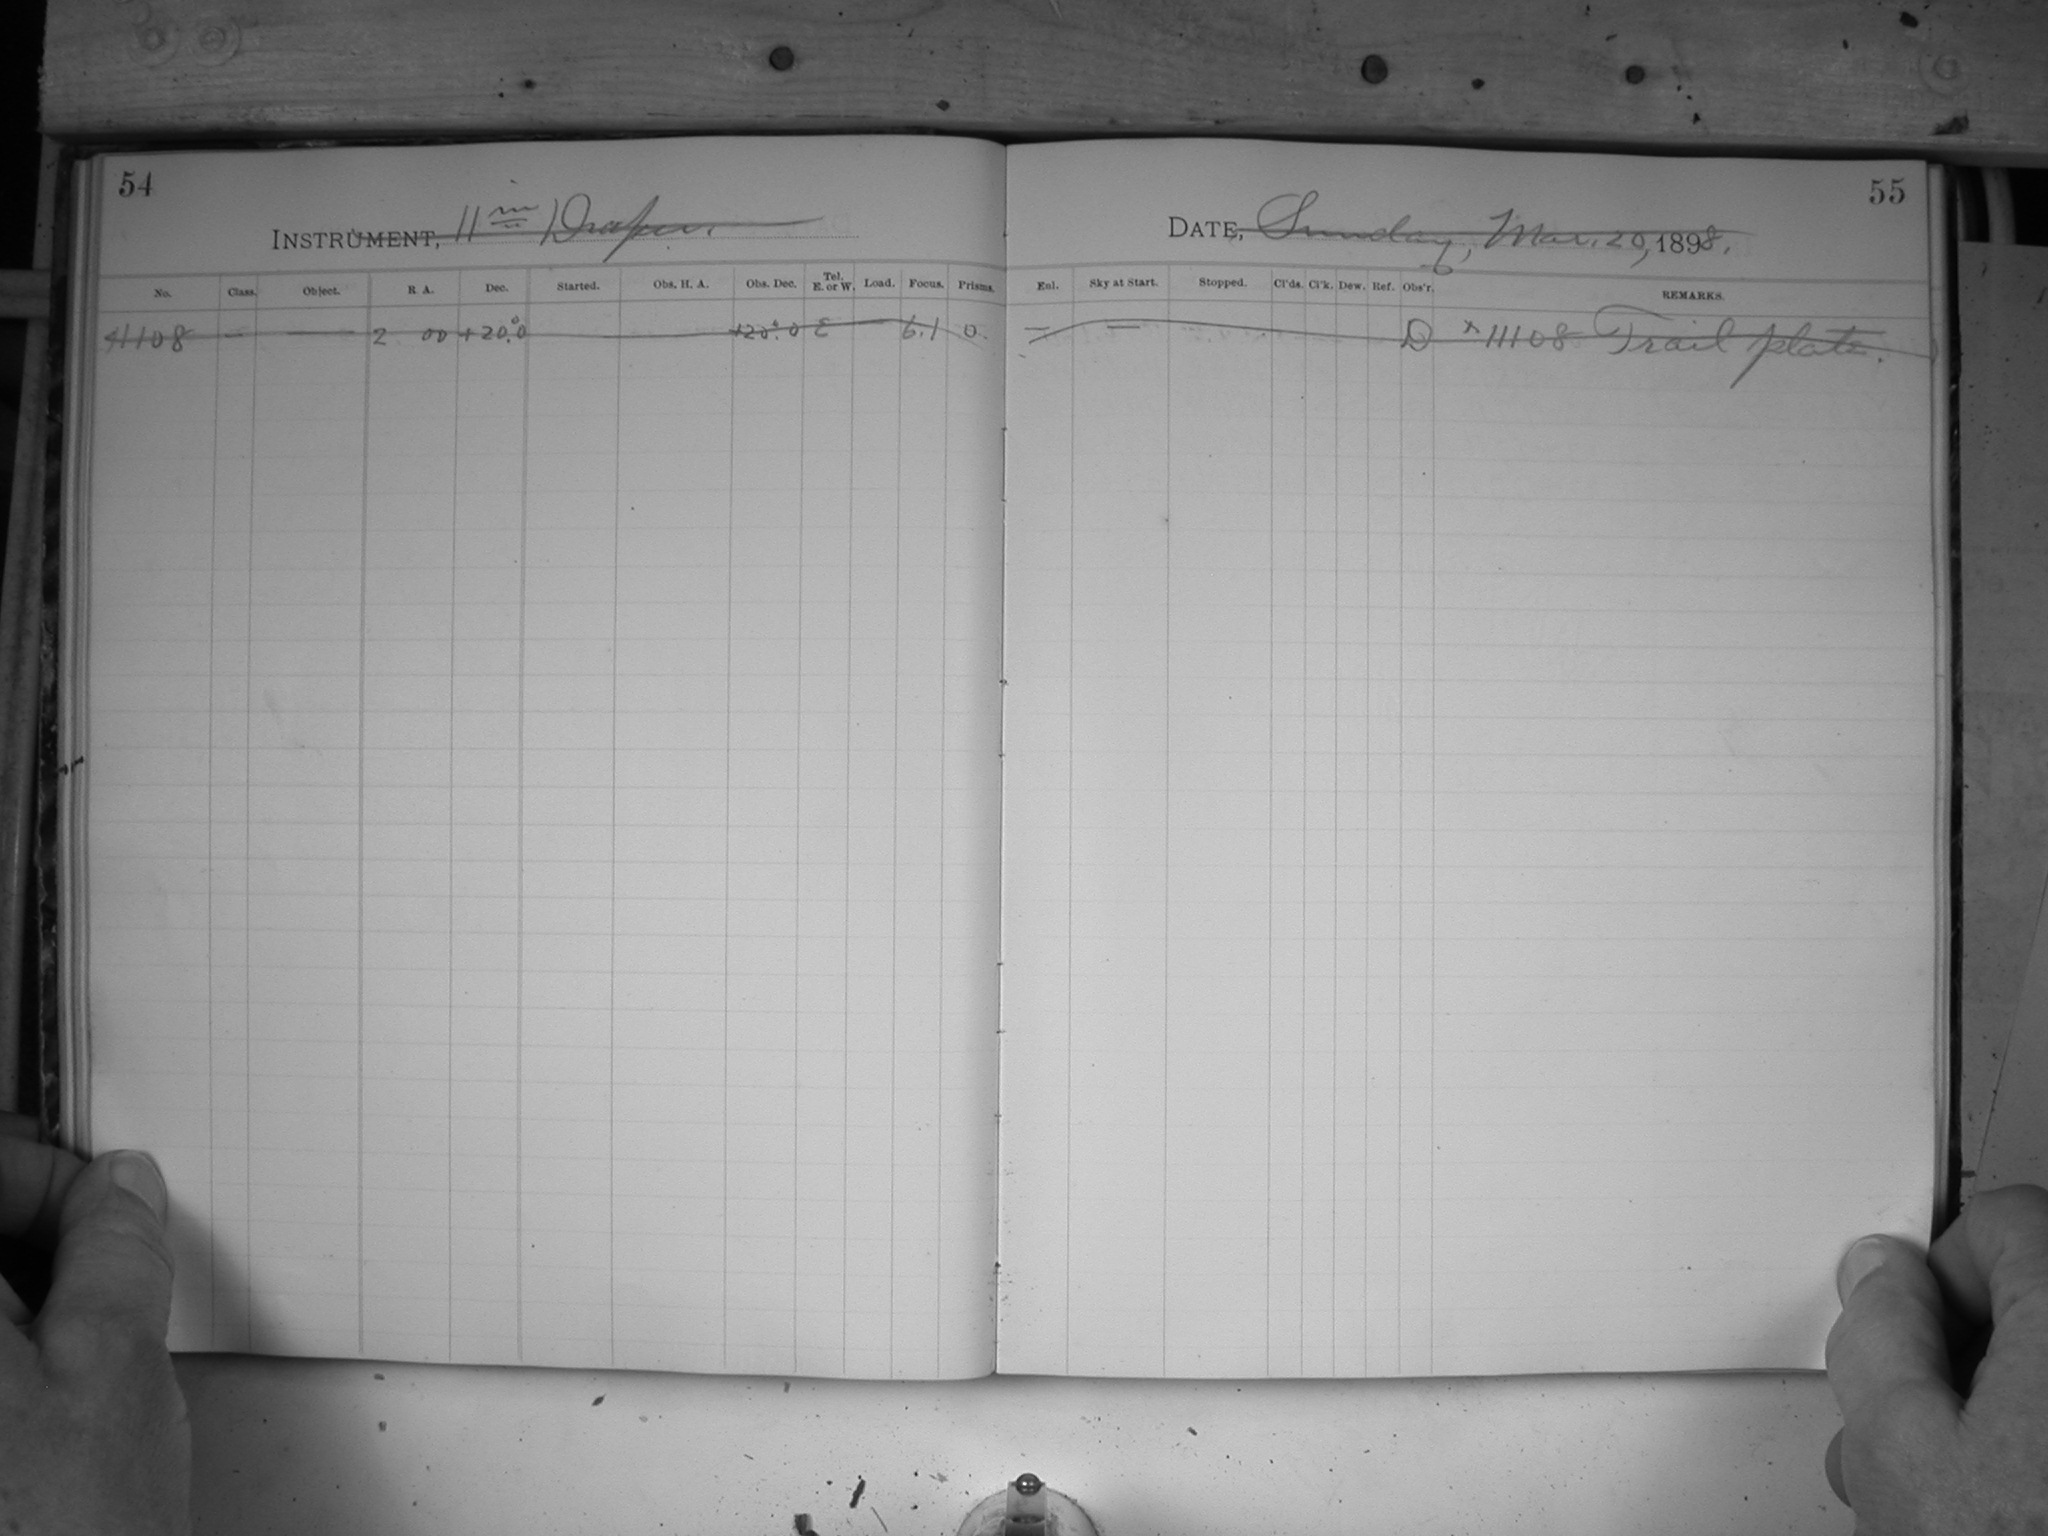 54
INSTRUMENT, 11 in Draper.
No. Class. Object. R A. Dec. Started. Obs. H. A. Obs. Dec. Tel. E. or W. Load. Focus. Prisms.
11108 — — 2 00 +20.°0 +20.°0 E — 6.1 0.
55
DATE, Sunday, Mar. 20, 1898.
Enl. Sky at Start. Stopped. Cl'ds. Cl'k. Dew. Ref. Obs'r. REMARKS.
— — D x 11108 Trail plate.